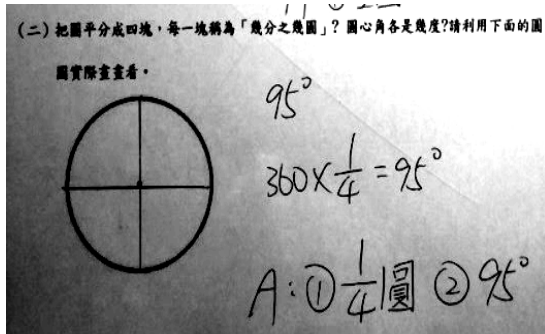 (二)把圓平分成四塊,每一塊稱為「幾分之幾圓」?圓心角各是幾度?請利用下面的圓
圖實際畫畫看。
95°
360×1/4=95°
A:①1/4圓 ②95°